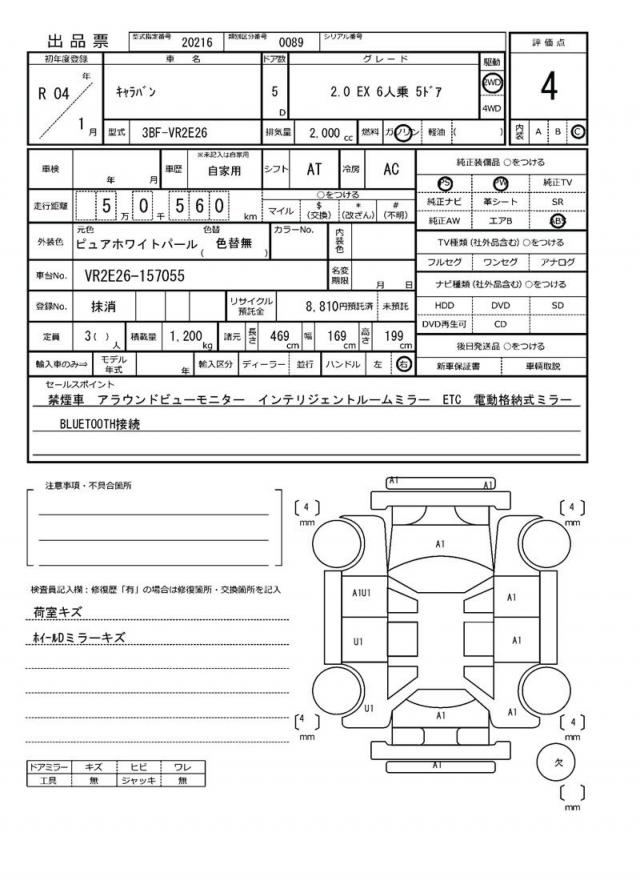 出品票 型式指定番号 20216 類別区分番号 0089 シリアル番号
評価点
4
内装 A B C
初年度登録 車名 ドア数 グレード 駆動
R 04 年 1 月
ｷｬﾗﾊﾞﾝ 5 D 2.0 EX 6人乗 5ﾄﾞｱ 2WD 4WD
型式 3BF-VR2E26 排気量 2,000 cc 燃料 ガソリン 軽油 ( )
車検 年 月 車歴 ※未記入は自家用 自家用 シフト AT 冷房 AC
走行距離 5 万 0 千 5 6 0 km
○をつける
マイル $ (交換) * (改ざん) # (不明)
外装色 元色 ピュアホワイトパール 色替 ( 色替無 ) カラーNo. 内装色
車台No. VR2E26-157055 名変期限 月 日
登録No. 抹消 リサイクル預託金 8,810円預託済 未預託
定員 3( ) 人 積載量 1,200 kg 諸元 長さ 469 cm 幅 169 cm 高さ 199 cm
輸入車のみ⇒ モデル年式 年 輸入区分 ディーラー 並行 ハンドル 左 右
純正装備品 ○をつける
PS PW 純正TV
純正ナビ 革シート SR
純正AW エアB ABS
TV種類(社外品含む)○をつける
フルセグ ワンセグ アナログ
ナビ種類(社外品含む)○をつける
HDD DVD SD
DVD再生可 CD
後日発送品 ○をつける
新車保証書 車輌取説
セールスポイント
禁煙車 アラウンドビューモニター インテリジェントルームミラー ETC 電動格納式ミラー
BLUETOOTH接続
注意事項・不具合箇所
検査員記入欄：修復歴「有」の場合は修復箇所・交換箇所を記入
荷室キズ
ﾎｲｰﾙDミラーキズ
ドアミラー キズ ヒビ ワレ
工具 無 ジャッキ 無
A1
A1
4 mm
4 mm
A1
A1U1
A1
U1
A1
U1
A1
A1
4 mm
4 mm
A1
欠
mm